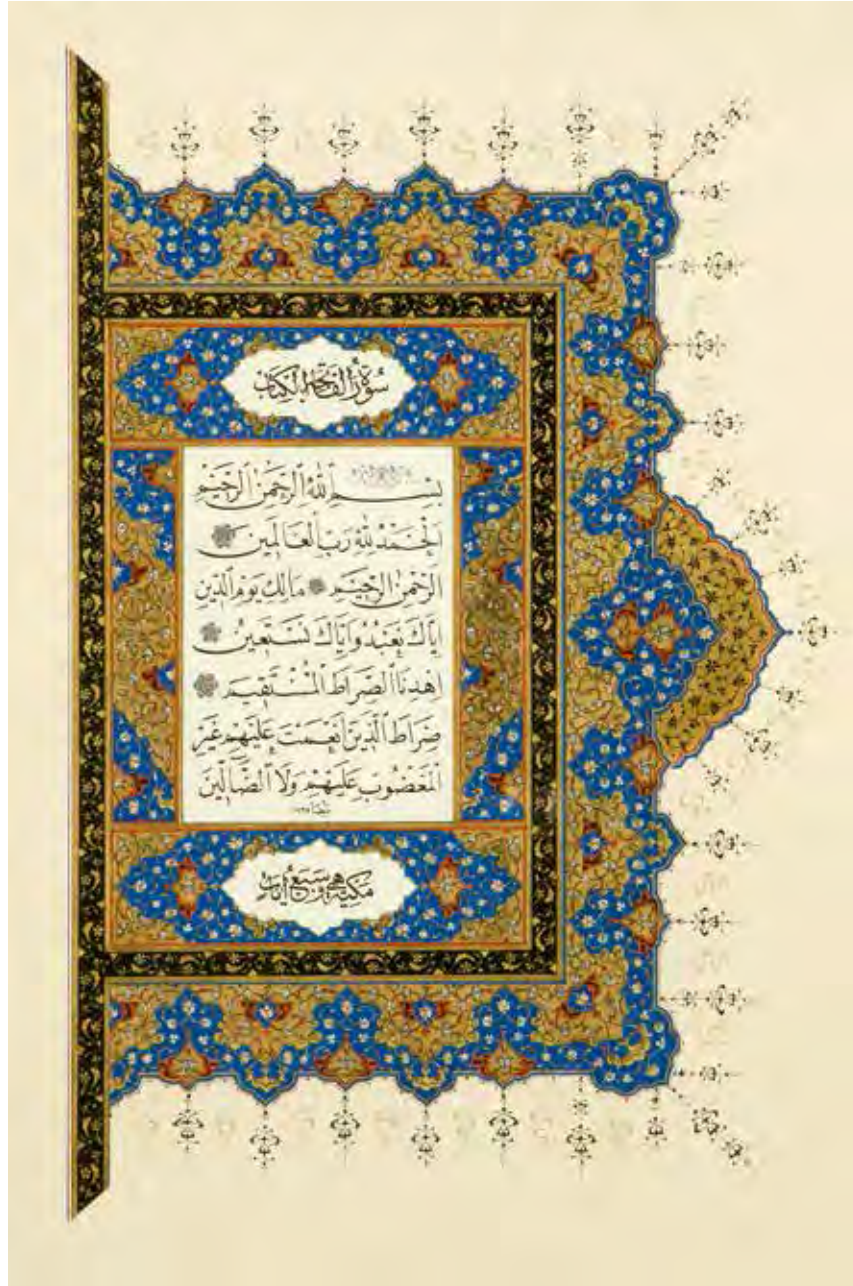 سُورَةُ الْفَاتِحَةِ الْكِتَابِ
بِسْمِ اللّٰهِ الرَّحْمٰنِ الرَّحِيْمِ
اَلْحَمْدُ لِلّٰهِ رَبِّ الْعَالَمِينَ
الرَّحْمٰنِ الرَّحِيْمِ مَالِكِ يَوْمِ الدِّينِ
اِيَّاكَ نَعْبُدُ وَاِيَّاكَ نَسْتَعِينُ
اِهْدِنَا الصِّرَاطَ الْمُسْتَقِيمَ
صِرَاطَ الَّذِينَ اَنْعَمْتَ عَلَيْهِمْ غَيْرِ
الْمَغْضُوبِ عَلَيْهِمْ وَلَا الضَّالِّينَ
مَكِّيَّة وَهِيَ سَبْعُ اٰيَات